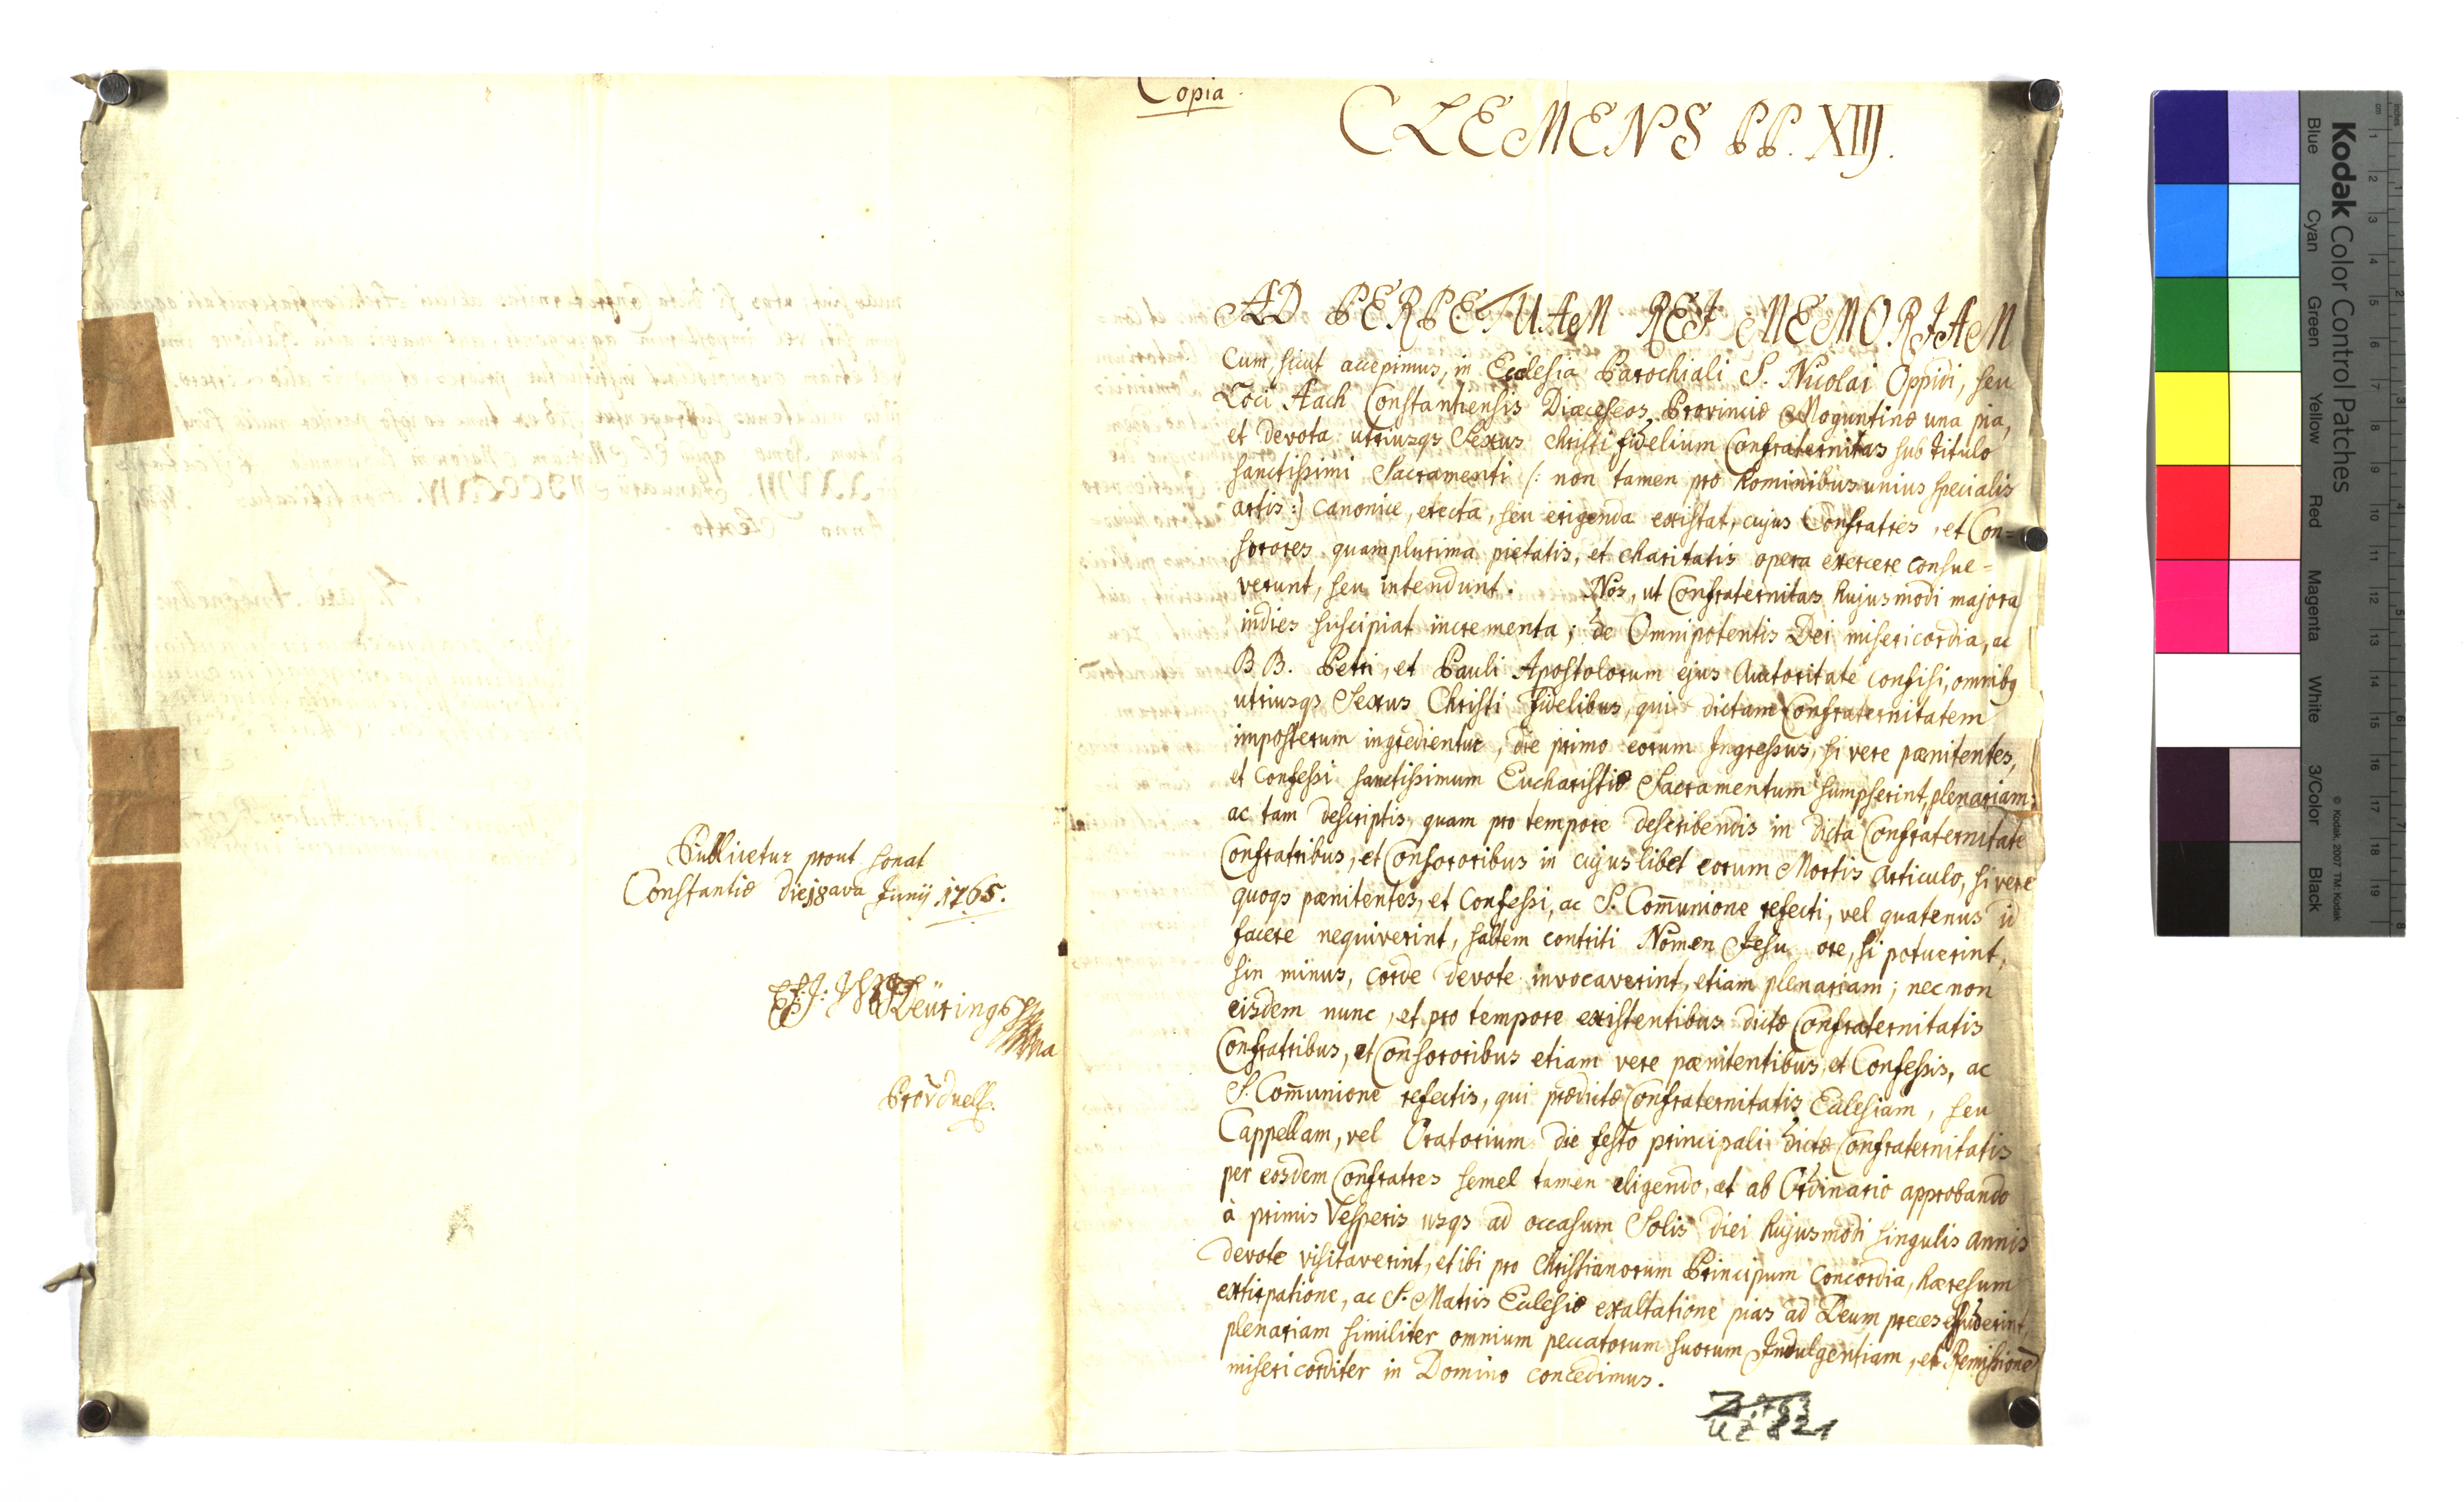 Publicetur prout sonat
Constantiæ die 18ava Junij 1765.
Deüring
Copia.
CLEMENS PP. XIIJ.
AD PERPETUAM REJ MEMORJAM
Cum, sicut accepimus, in Ecclesia Parochiali S. Nicolai Oppidi, seu
Loci Aach Constantiensis Diæceseos, Provinciæ Moguntinæ una pia,
et devota utriusqs Sexus Christi fidelium Confraternitas sub titulo
sanctissimi Sacramenti /: non tamen pro hominibus unius specialis
artis :/ canonice, erecta, seu erigenda existat, cujus Confratres, et Con=
sorores quamplurima pietatis, et charitatis opera exercere consue=
verunt, seu intendunt. Nos, ut Confraternitas hujusmodi majora
indies suscipiat incrementa; de Omnipotentis Dei misericordia, ac
BB. Petri, et Pauli Apostolorum ejus Autoritate confisi, omnibq
utriusqs Sexus Christi fidelibus, qui dictam Confraternitatem
imposterum ingredientur, die primo eorum Ingressus, si vere pænitentes,
et Confessi sanctissimum Eucharistiæ Sacramentum sumpserint, plenariam;
ac tam descriptis, quam pro tempore describendis in dicta Confraternitate
Confratribus, et Consororibus in cujuslibet eorum Mortis Articulo, si vere
quoqs pænitentes, et Confessi, ac S. Com̄unione refecti, vel quatenus id
facere nequiverint, saltem contriti Nomen Jesu ore, si potuerint,
sin minus, corde devote invocaverint, etiam plenariam; nec non
eisdem nunc, et pro tempore existentibus dictæ Confraternitatis
Confratribus, et Consororibus etiam vere pænitentibus, et Confessis, ac
S. Com̄unione refectis, qui prædictæ Confraternitatis Ecclesiam, seu
Cappellam, vel Oratorium die festo principali dictæ Confraternitatis
per eosdem Confratres semel tamen eligendo, et ab Ordinario approbando
à primis Vesperis usqs ad occasum Solis diei hujusmodi singulis annis
devote visitaverint, et ibi pro Christianorum Principum concordia, hæresum
extirpatione, ac S. Matris Ecclesiæ exaltatione pias ad Deum preces effuderint,
plenariam similiter omnium peccatorum suorum Indulgentiam, et Remissionē
misericorditer in Domino concedimus.
UZ 821
Kodak Color Control Patches
Blue Cyan Green Yellow Red Magenta White 3/Color Black
© Kodak, 2007 TM: Kodak
cm 1 2 3 4 5 6 7 8 9 10 11 12 13 14 15 16 17 18 19
inches 1 2 3 4 5 6 7 8